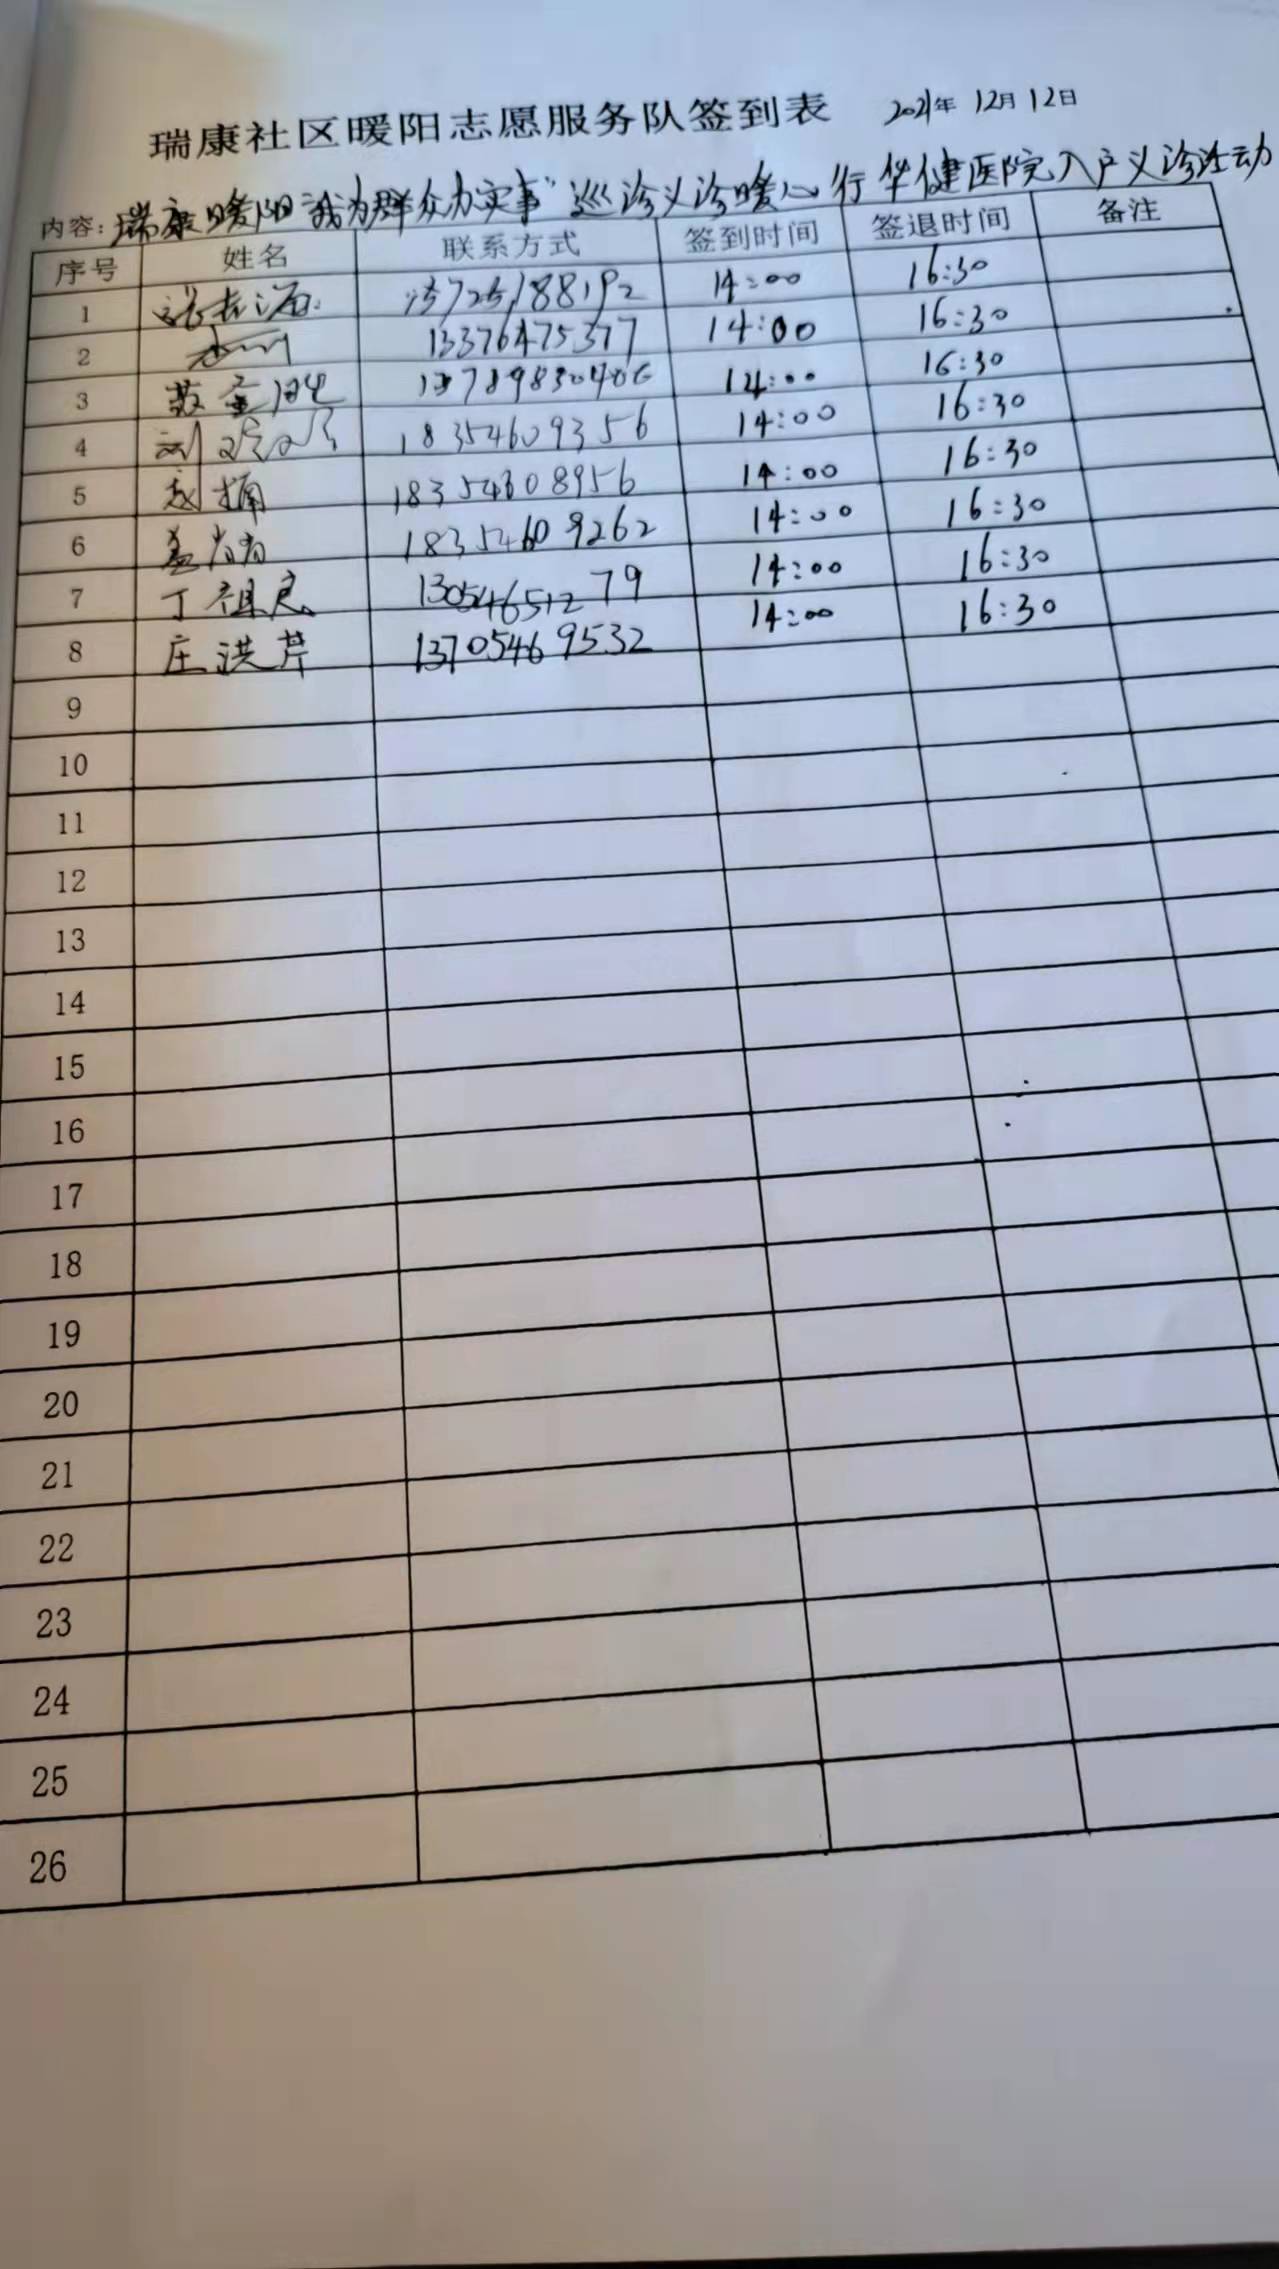 瑞康社区暖阳志愿服务队签到表 2021年 12月12日
内容: 瑞康暖阳“我为群众办实事”巡诊义诊暖心行 华健医院入户义诊活动
序号 姓名 联系方式 签到时间 签退时间 备注
1 14:00 16:30
2 13376475377 14:00 16:30
3 14:00 16:30
4 刘 18354609356 14:00 16:30
5 赵楠 18354608956 14:00 16:30
6 孟肖肖 18354609262 14:00 16:30
7 丁祖良 13054651279 14:00 16:30
8 庄洪芹 13705469532 14:00 16:30
9
10
11
12
13
14
15
16
17
18
19
20
21
22
23
24
25
26